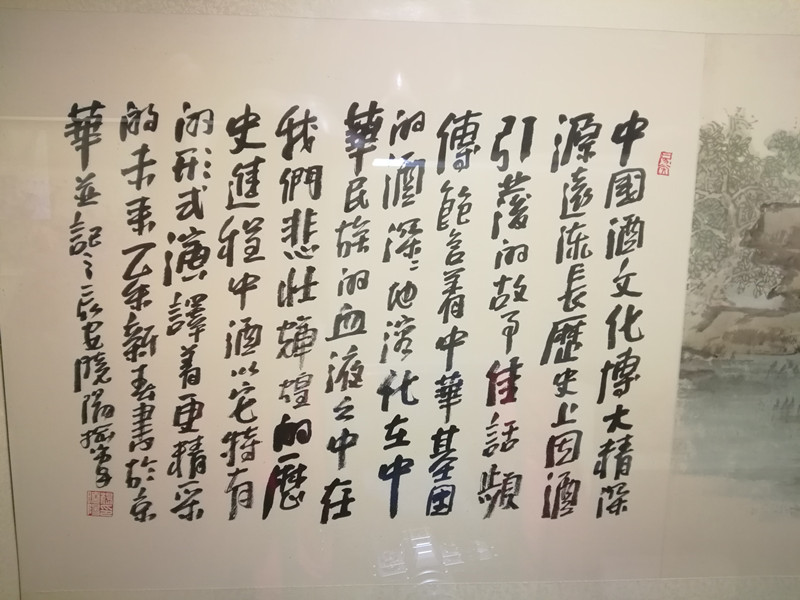 中國酒文化博大精深
源遠流長歷史上因酒
引發的故事佳話頻
傳飽含着中華基因
的酒深深地溶化在中
華民族的血液之中在
我們悲壯輝煌的歷
史進程中酒以它特有
的形式演譯着更精采
的未來乙未新春書於京
華並記之